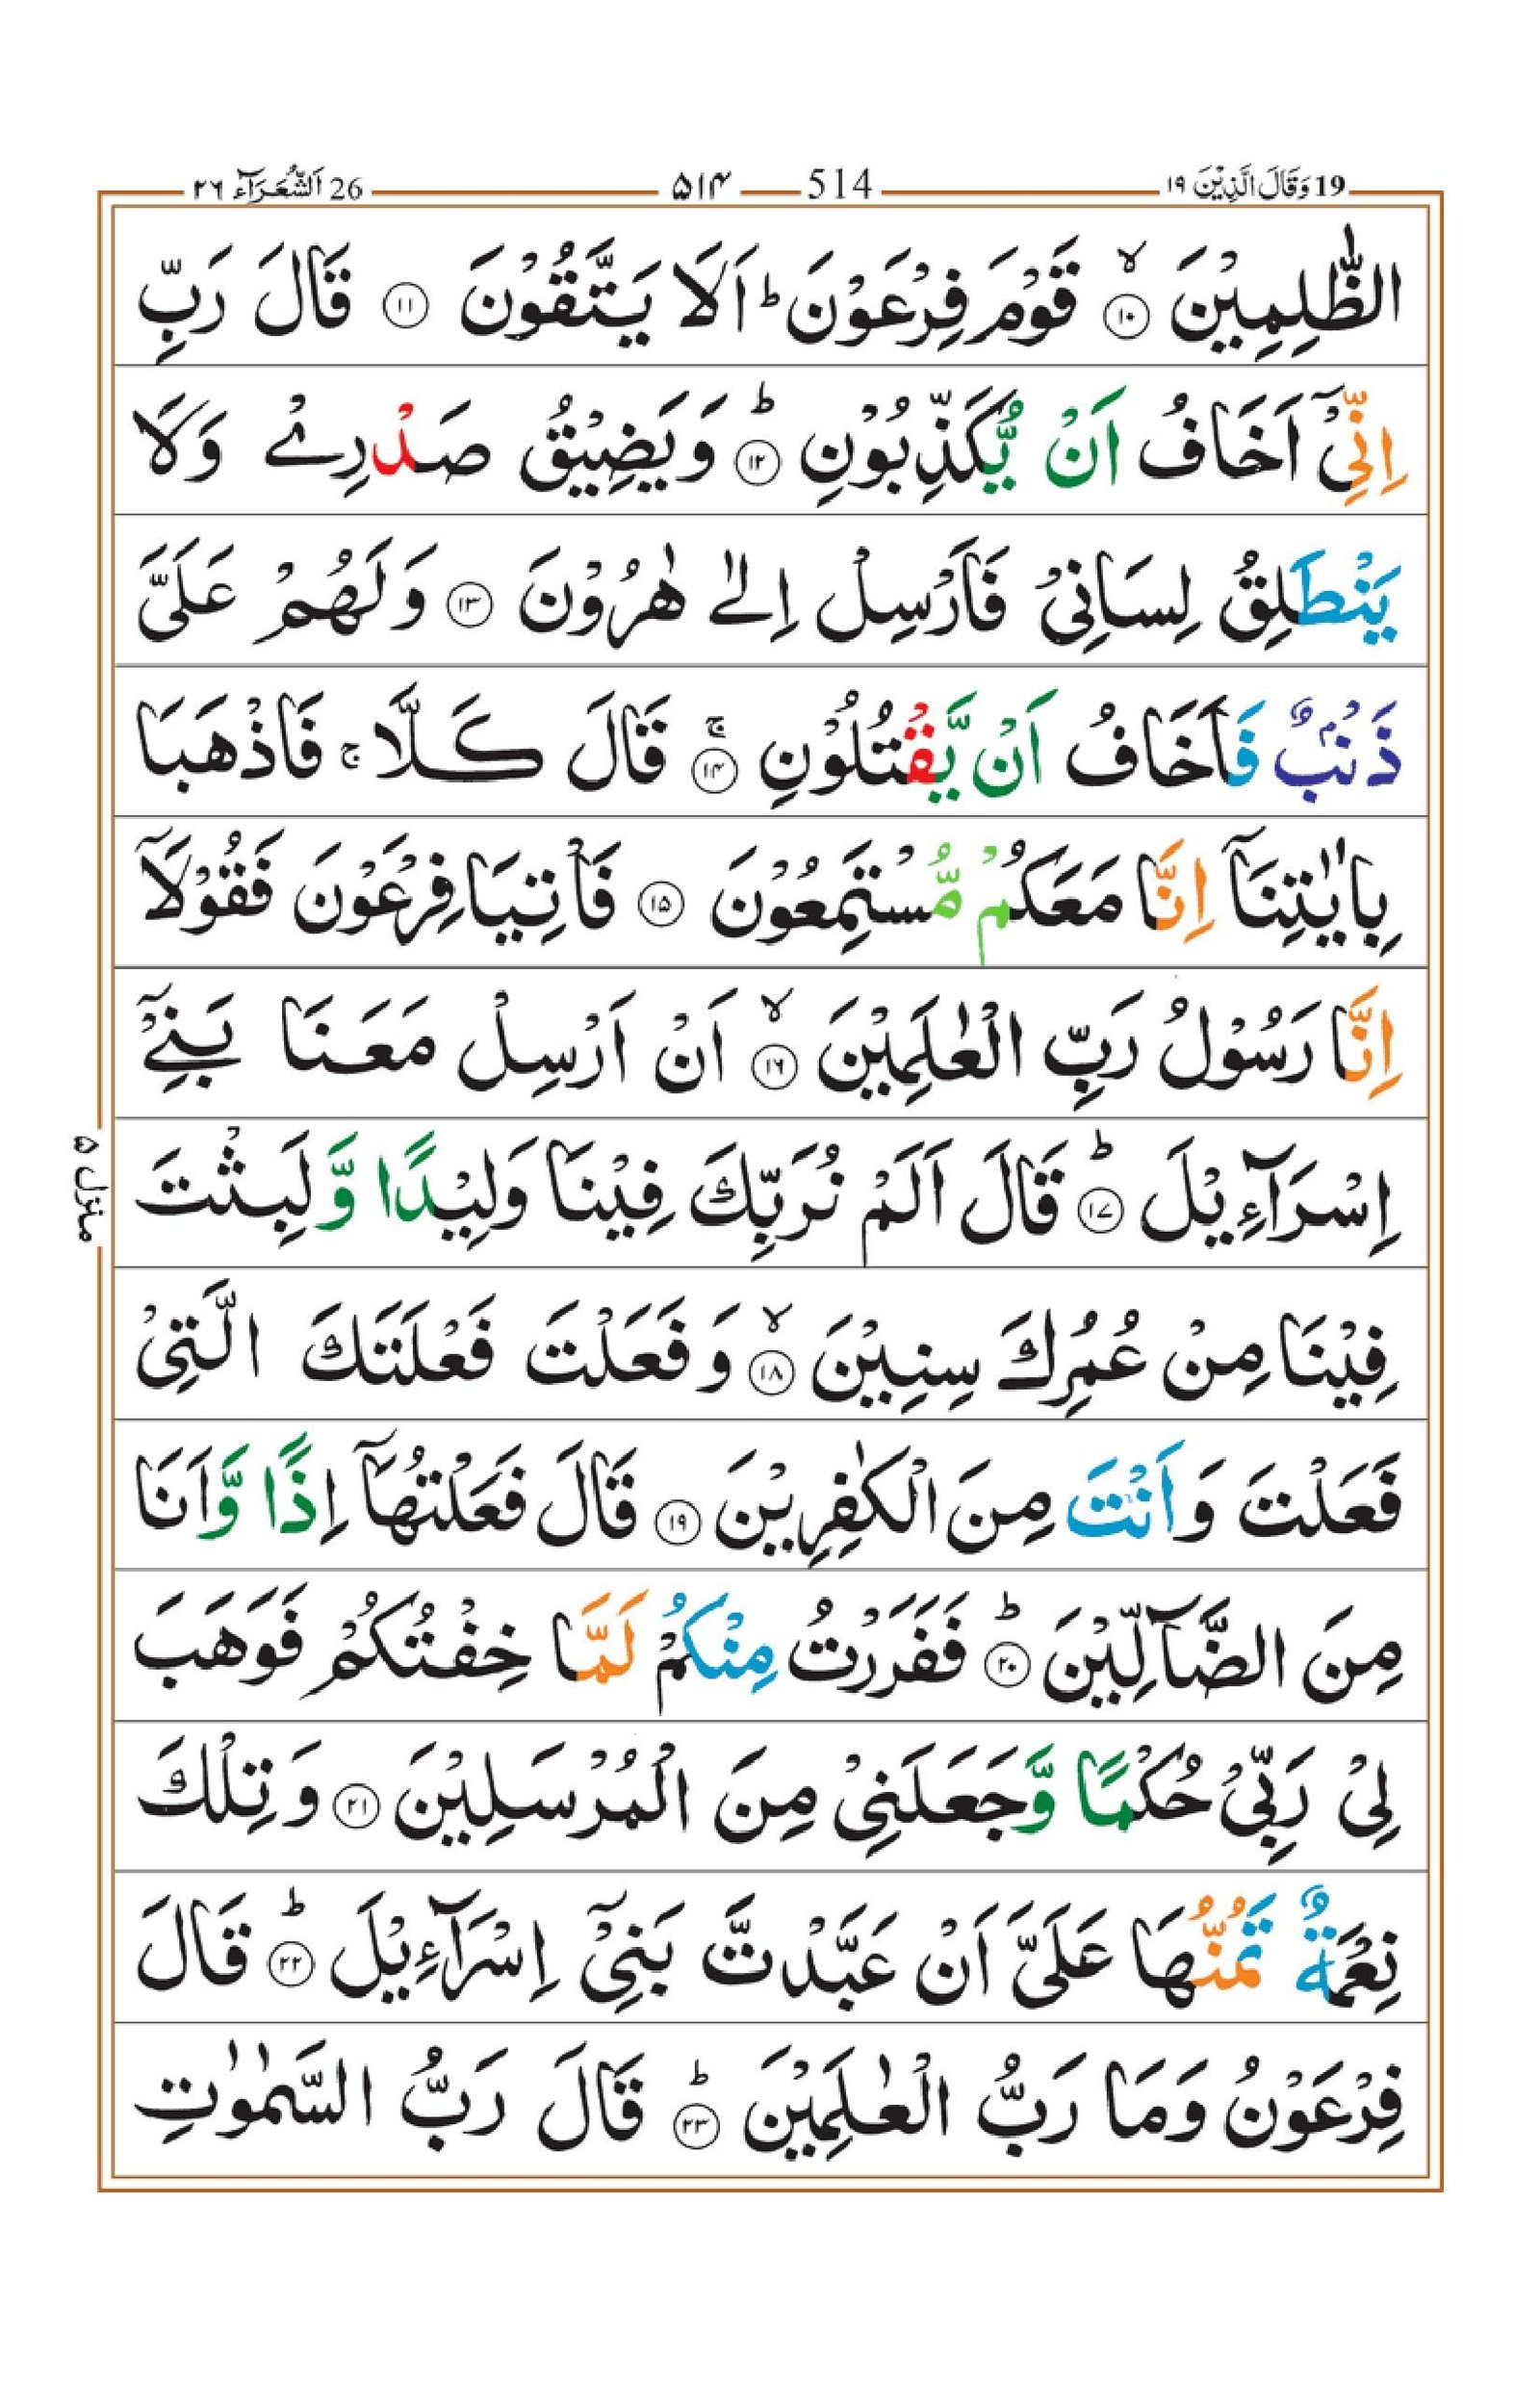 19 وَقَالَ الَّذِيْنَ ١٩ 514 ۵۱۴ 26 اَلشُّعَرَآء ٢٦
الظّٰلِمِيْنَ ۙ‏﴿۱۰﴾ قَوْمَ فِرْعَوْنَ ؕ اَلَا يَتَّقُوْنَ ﴿۱۱﴾ قَالَ رَبِّ
اِنِّىْۤ اَخَافُ اَنْ يُّكَذِّبُوْنِ ؕ﴿۱۲﴾ وَيَضِيْقُ صَدْرِىْ وَلَا
يَنْطَلِقُ لِسَانِىْ فَاَرْسِلْ اِلٰى هٰرُوْنَ ﴿۱۳﴾ وَلَهُمْ عَلَىَّ
ذَنْۢبٌ فَاَخَافُ اَنْ يَّقْتُلُوْنِ ۚ﴿۱۴﴾ قَالَ كَلَّا ۚ فَاذْهَبَا
بِاٰيٰتِنَاۤ اِنَّا مَعَكُمْ مُّسْتَمِعُوْنَ ﴿۱۵﴾ فَاْتِيَا فِرْعَوْنَ فَقُوْلَاۤ
اِنَّا رَسُوْلُ رَبِّ الْعٰلَمِيْنَ ۙ﴿۱۶﴾ اَنْ اَرْسِلْ مَعَنَا بَنِىْۤ
اِسْرَآءِيْلَ ؕ﴿۱۷﴾ قَالَ اَلَمْ نُرَبِّكَ فِيْنَا وَلِيْدًا وَّلَبِثْتَ
فِيْنَا مِنْ عُمُرِكَ سِنِيْنَ ۙ﴿۱۸﴾ وَفَعَلْتَ فَعْلَتَكَ الَّتِىْ
فَعَلْتَ وَاَنْتَ مِنَ الْكٰفِرِيْنَ ﴿۱۹﴾ قَالَ فَعَلْتُهَاۤ اِذًا وَّاَنَا
مِنَ الضَّآلِّيْنَ ؕ﴿۲۰﴾ فَفَرَرْتُ مِنْكُمْ لَمَّا خِفْتُكُمْ فَوَهَبَ
لِىْ رَبِّىْ حُكْمًا وَّجَعَلَنِىْ مِنَ الْمُرْسَلِيْنَ ﴿۲۱﴾ وَتِلْكَ
نِعْمَةٌ تَمُنُّهَا عَلَىَّ اَنْ عَبَّدْتَّ بَنِىْۤ اِسْرَآءِيْلَ ؕ﴿۲۲﴾ قَالَ
فِرْعَوْنُ وَمَا رَبُّ الْعٰلَمِيْنَ ؕ﴿۲۳﴾ قَالَ رَبُّ السَّمٰوٰتِ
منزل ۵